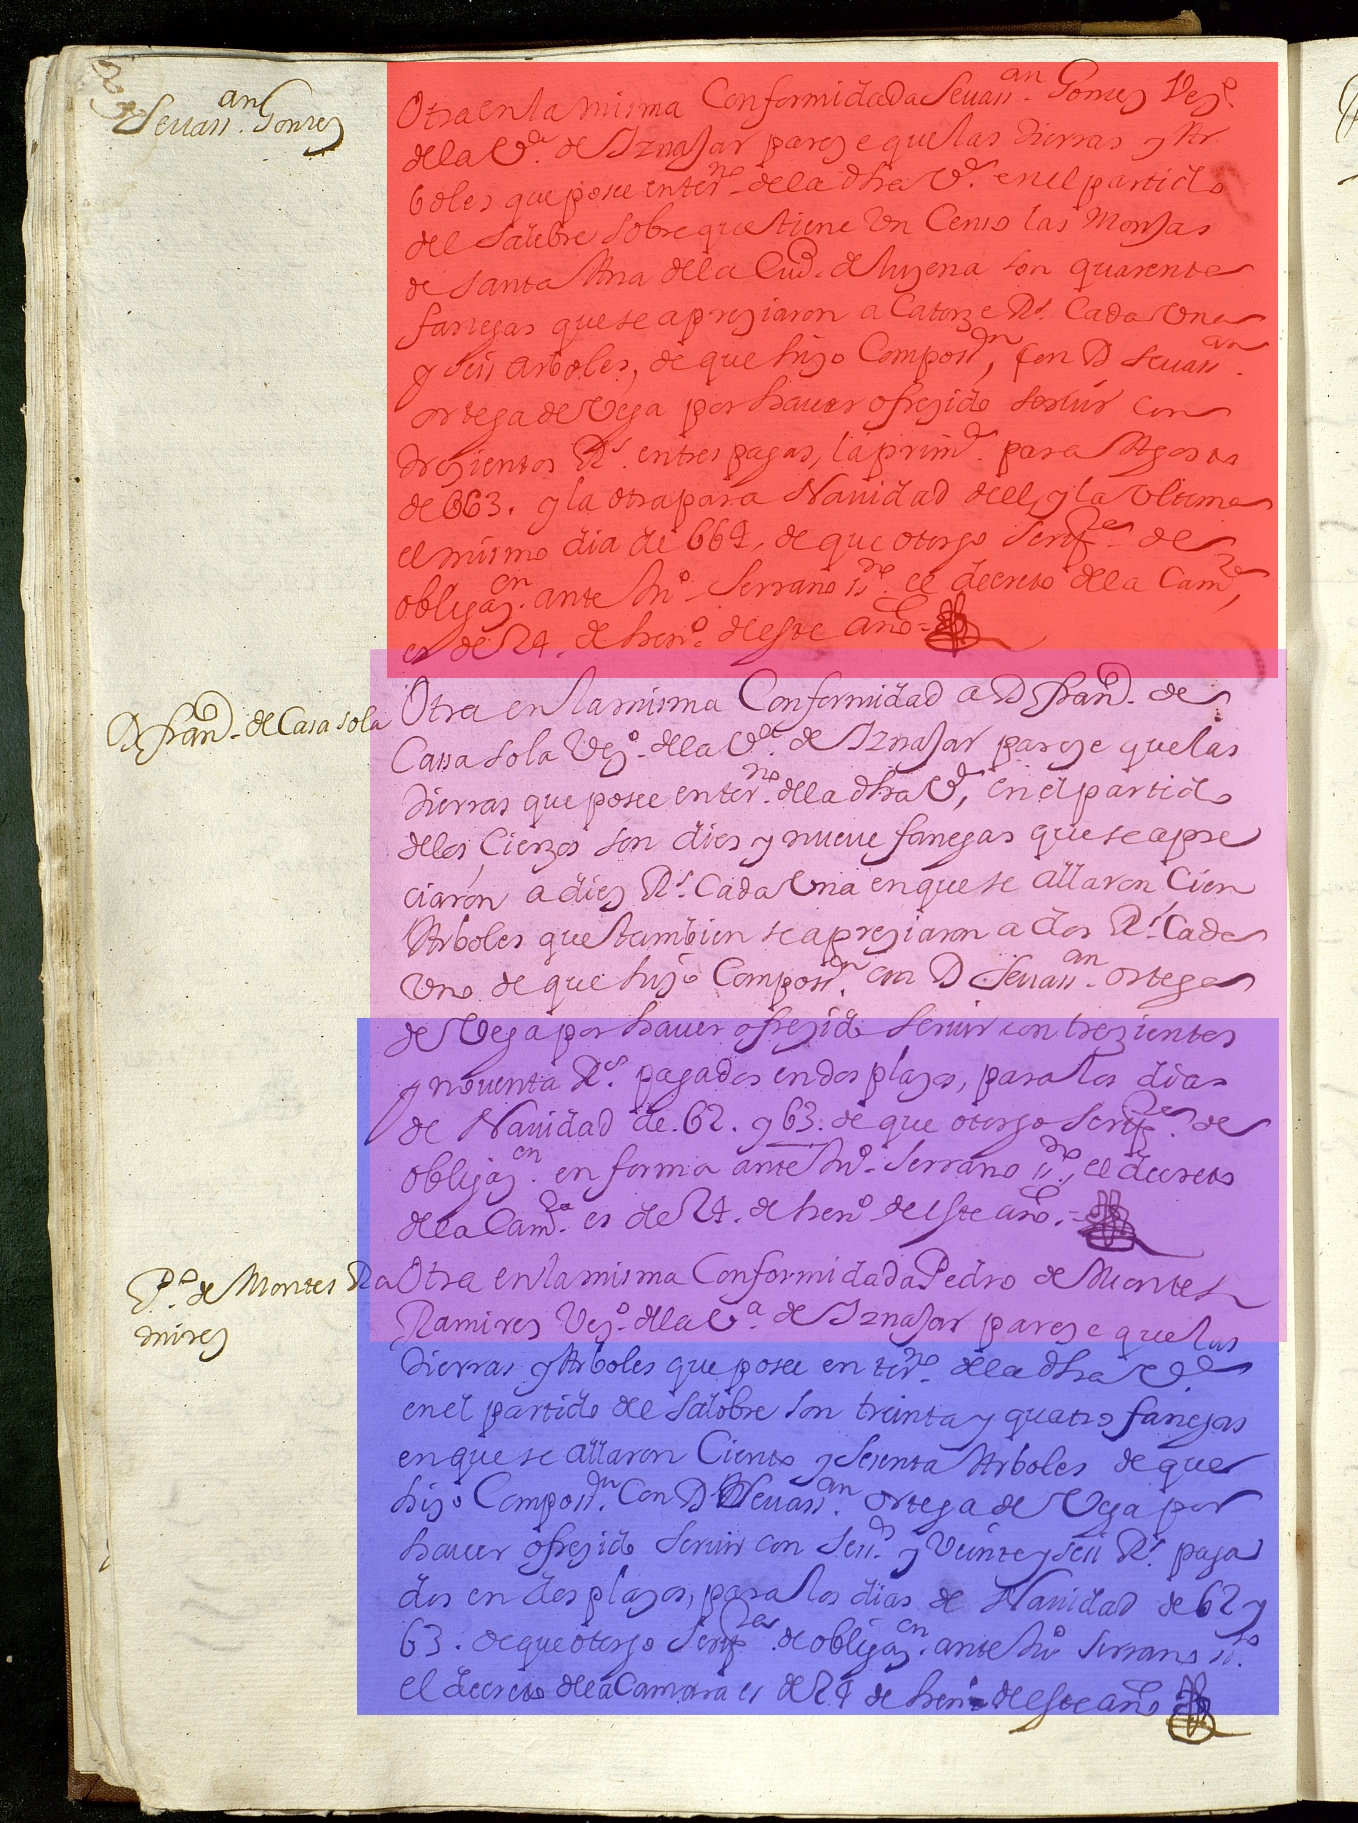 Sevasn. Gomez
Otra en la misma Conformidad a Sevasn. Gomez Vezo.
de la Va. de Iznajar pareze que las tierras y Ar
boles que posee en terno. de la dha Va. en el partido
del Salobre sobre que tiene un Censo las Monjas
de Santa Ana de la Ciud. de luzena son quarenta
fanegas que se apreziaron a Catorze Rs. Cada Una
y seis arboles, de que hizo Composn, con D Sevasn.
ortega de Vega por haver ofrezido servir con
trezientos Rs. en tres pagas, la prima. para Agosto
de 663. y la otra para Navidad dell, y la Ultima
el mismo dia de 664, de que otorgo Scripra. de
obligazn. ante Juo. Serrano ssno. el decreto de la Camra,
es de 24. de heno. de este año=
D Franco. de Casasola
Otra en la misma Conformidad a D Franco. de
Cassasola Vezo. de la Va. de Iznajar pareze que las
tierras que posee en terno. de la dha Va, en el partido
de los Cierzos son dies y nueve fanegas que se apre
ciaron a diez Rs. Cada Una en que se allaron Cien
Arboles que tambien se apreziaron a dos Rs. Cada
Uno de que hizo Composn. con D Sevasn. ortega
de Vega por haver ofrezido servir con trezientos
y noventa Rs. pagados en dos plazos, para los dias
de Navidad de 62. y 63. de que otorgo Scripra. de
obligazn. en forma ante Juo. Serrano ssno, el decreto
de la Camra. es de 24. de heno. de este año.=
Po. de Montes Ra
mirez
Otra en la misma Conformidad a Pedro de Montes
Ramirez Vezo. de la Va. de Iznajar pareze que las
tierras y Arboles que posee en terno. de la dha Va
en el partido de Salobre son treinta y quatro fanegas
en que se allaron Ciento y sesenta Arboles de que
hizo Composn. Con D Sevasn. ortega de Vega por
haver ofrezido servir con seisos. y Veinte y seis Rs. paga
dos en dos plazos, para los dias de Navidad de 62 y
63. de que otorgo Scripras. de obligazn. ante Juo Serrano ssno.
el decreto de la Camara es de 24 de heno de este año